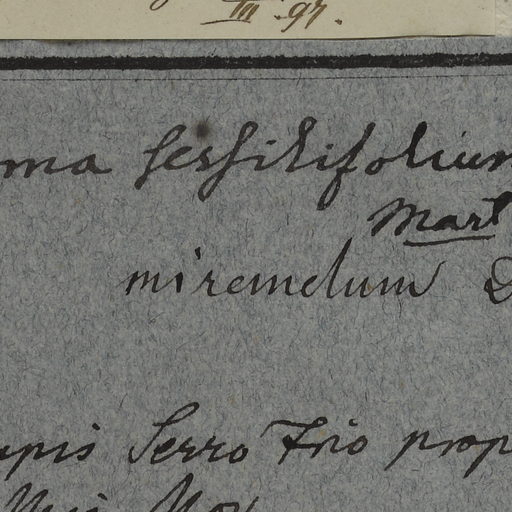 III. 97.
ma sessilifolium
Mart
miremdum D
upis Serro Frio prop